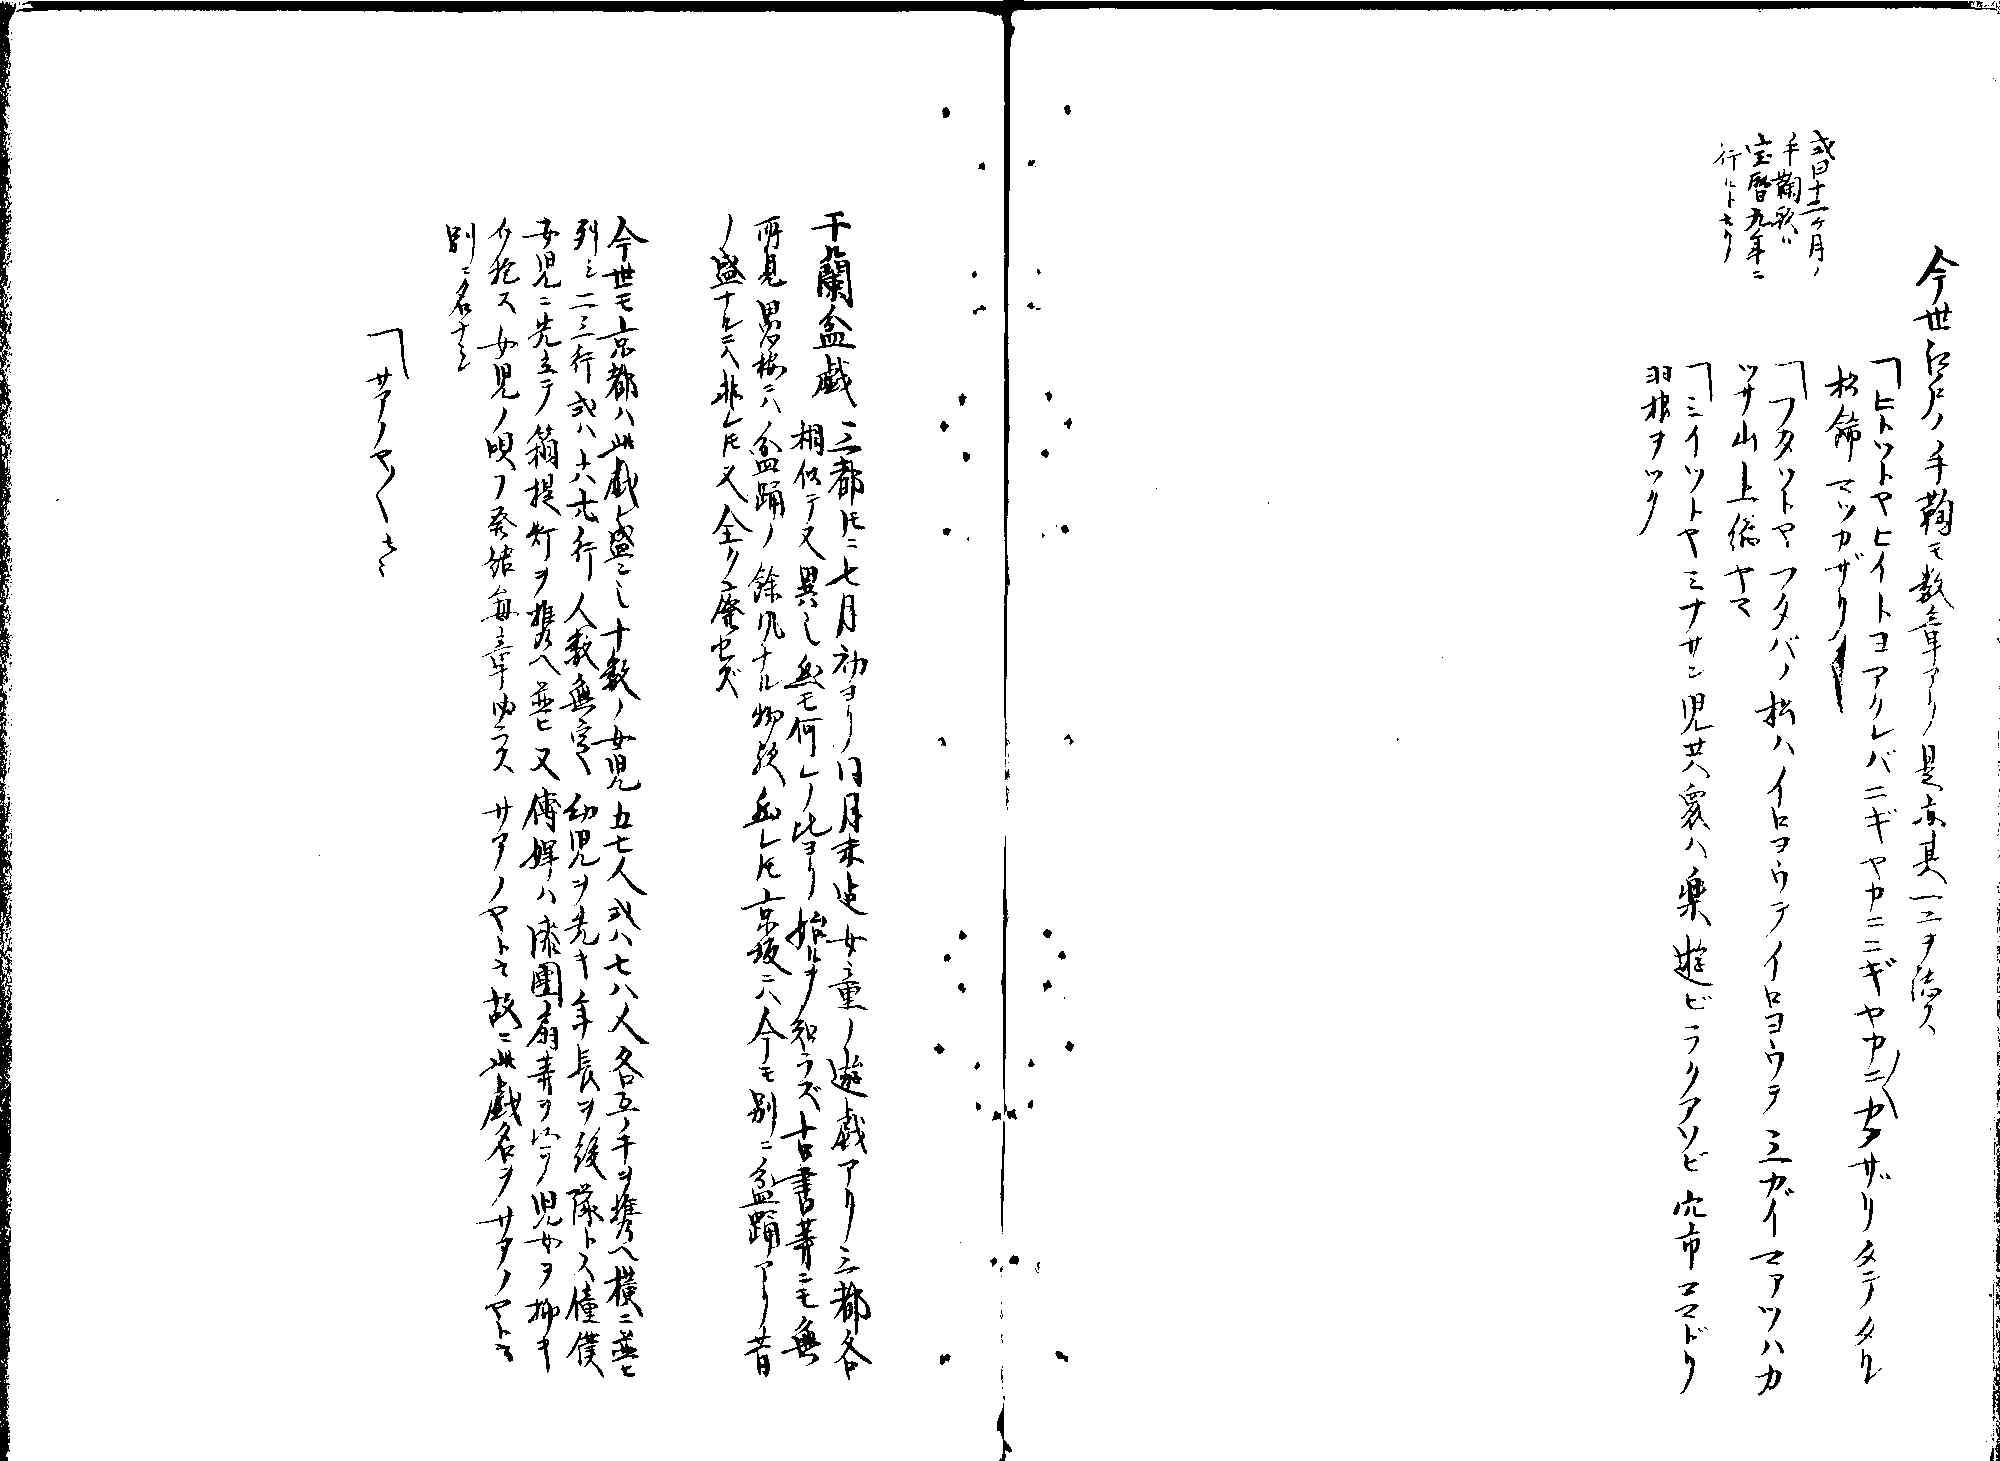 或曰十二ヶ月ノ
手鞠歌ハ
宝暦九年ニ
行ルトナリ
今世江戸ノ手鞠モ数章アリ是亦其一二ヲ誌ス
「ヒトツトヤヒイトヨアクレバニギヤカニニギヤカニ〱カザリタテタル
松飾マツカザリ
「フタツトヤフタバノ松ハイロヨウテイロヨウテ三カイマアツハカ
ツサ山上総ヤマ
「ミイツトヤミナサン児共衆ハ楽遊ビラクアソビ穴市コマドリ
羽根ヲツク
于蘭盆戯 三都トモニ七月初ヨリ同月末迠女童ノ遊戯アリ三都各
相似テ又異之然モ何レノ比ヨリ始ルヲ知ラズ古書等ニモ無
所見思按ニハ盆踊ノ餘風ナル物歟然レトモ京坂ニハ今モ別ニ盆踊アリ昔
ノ盛ナルニハ非レトモ又全ク廃セズ
今世モ京都ハ此戯ヲ盛ニシ十数ノ女児五七人或ハ七八人各互ノ手ヲ携ヘ横ニ並ヒ
列ミ二三行或ハ六七行人数無定幼児ヲ先キ年長ヲ後隊トス僮僕
女児ニ先立テ箱提灯ヲ携ヘ並ヒ又傅婢ハ漆團扇等ヲ以テ児女ヲ抑キ
女児ノ唄フ発端毎章必ラスサアノヤト云故ニ此戯名ヲサアノヤト云
別ニ名ナシ
「サアノヤノ〱